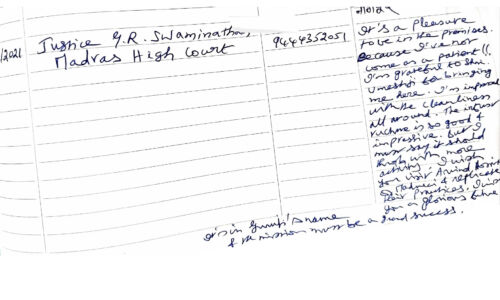 /2021
Justice G.R. Swaminathan,
Madras High Court
9444352051
It's a pleasure
to be in the premises.
Because I've not
come as a patient!!
I'm grateful to Shri.
Umesh for bringing
me here. I'm impressed
with the cleanliness
all around. The infrast
ructure is so good &
impressive. But I
must say it should
with more
activity. I wish
you visit Aravind
Madurai & replicate
their practices. I wish
you a glorious future
It's in Guruji's name
& the mission must be a grand success.